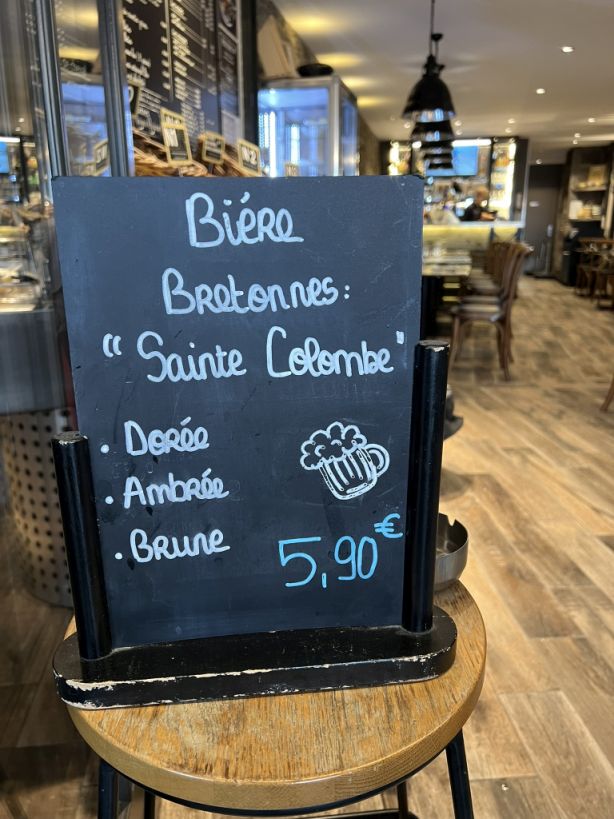 Biére
Bretonnes:
"Sainte Colombe"
. Dorée
. Ambrée
. Brune
5,90€